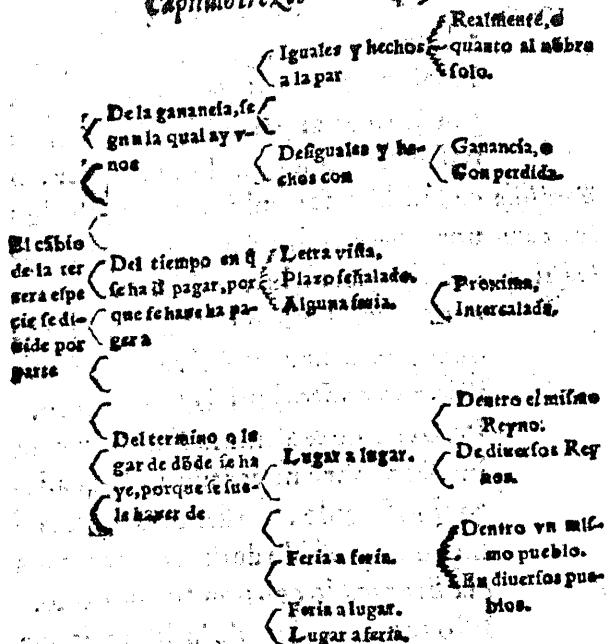 Capitulo
El cãbio
de la ter
cera espe
cie se di-
uide por
parte
De la ganancia, se
gun la qual ay v-
nos
Iguales y hechos
a la par
Realmente, o
quanto al nõbre
solo.
Desiguales y he-
chos con
Ganancia, o
Con perdida.
Del tiempo en q̃
se ha d̃ pagar, por
que se haze ha pa-
gar a
Letra vista,
Plazo señalado.
Alguna feria.
Proxima,
Intercalada,
Del termino o lu
gar de dõde se ha
ze, porque se sue-
le hazer de
Lugar a lugar.
Dentro el mismo
Reyno:
De diuersos Rey
nos.
Feria a feria.
Dentro vn mis-
mo pueblo.
En diuersos pue-
blos.
Feria a lugar.
Lugar a feria.